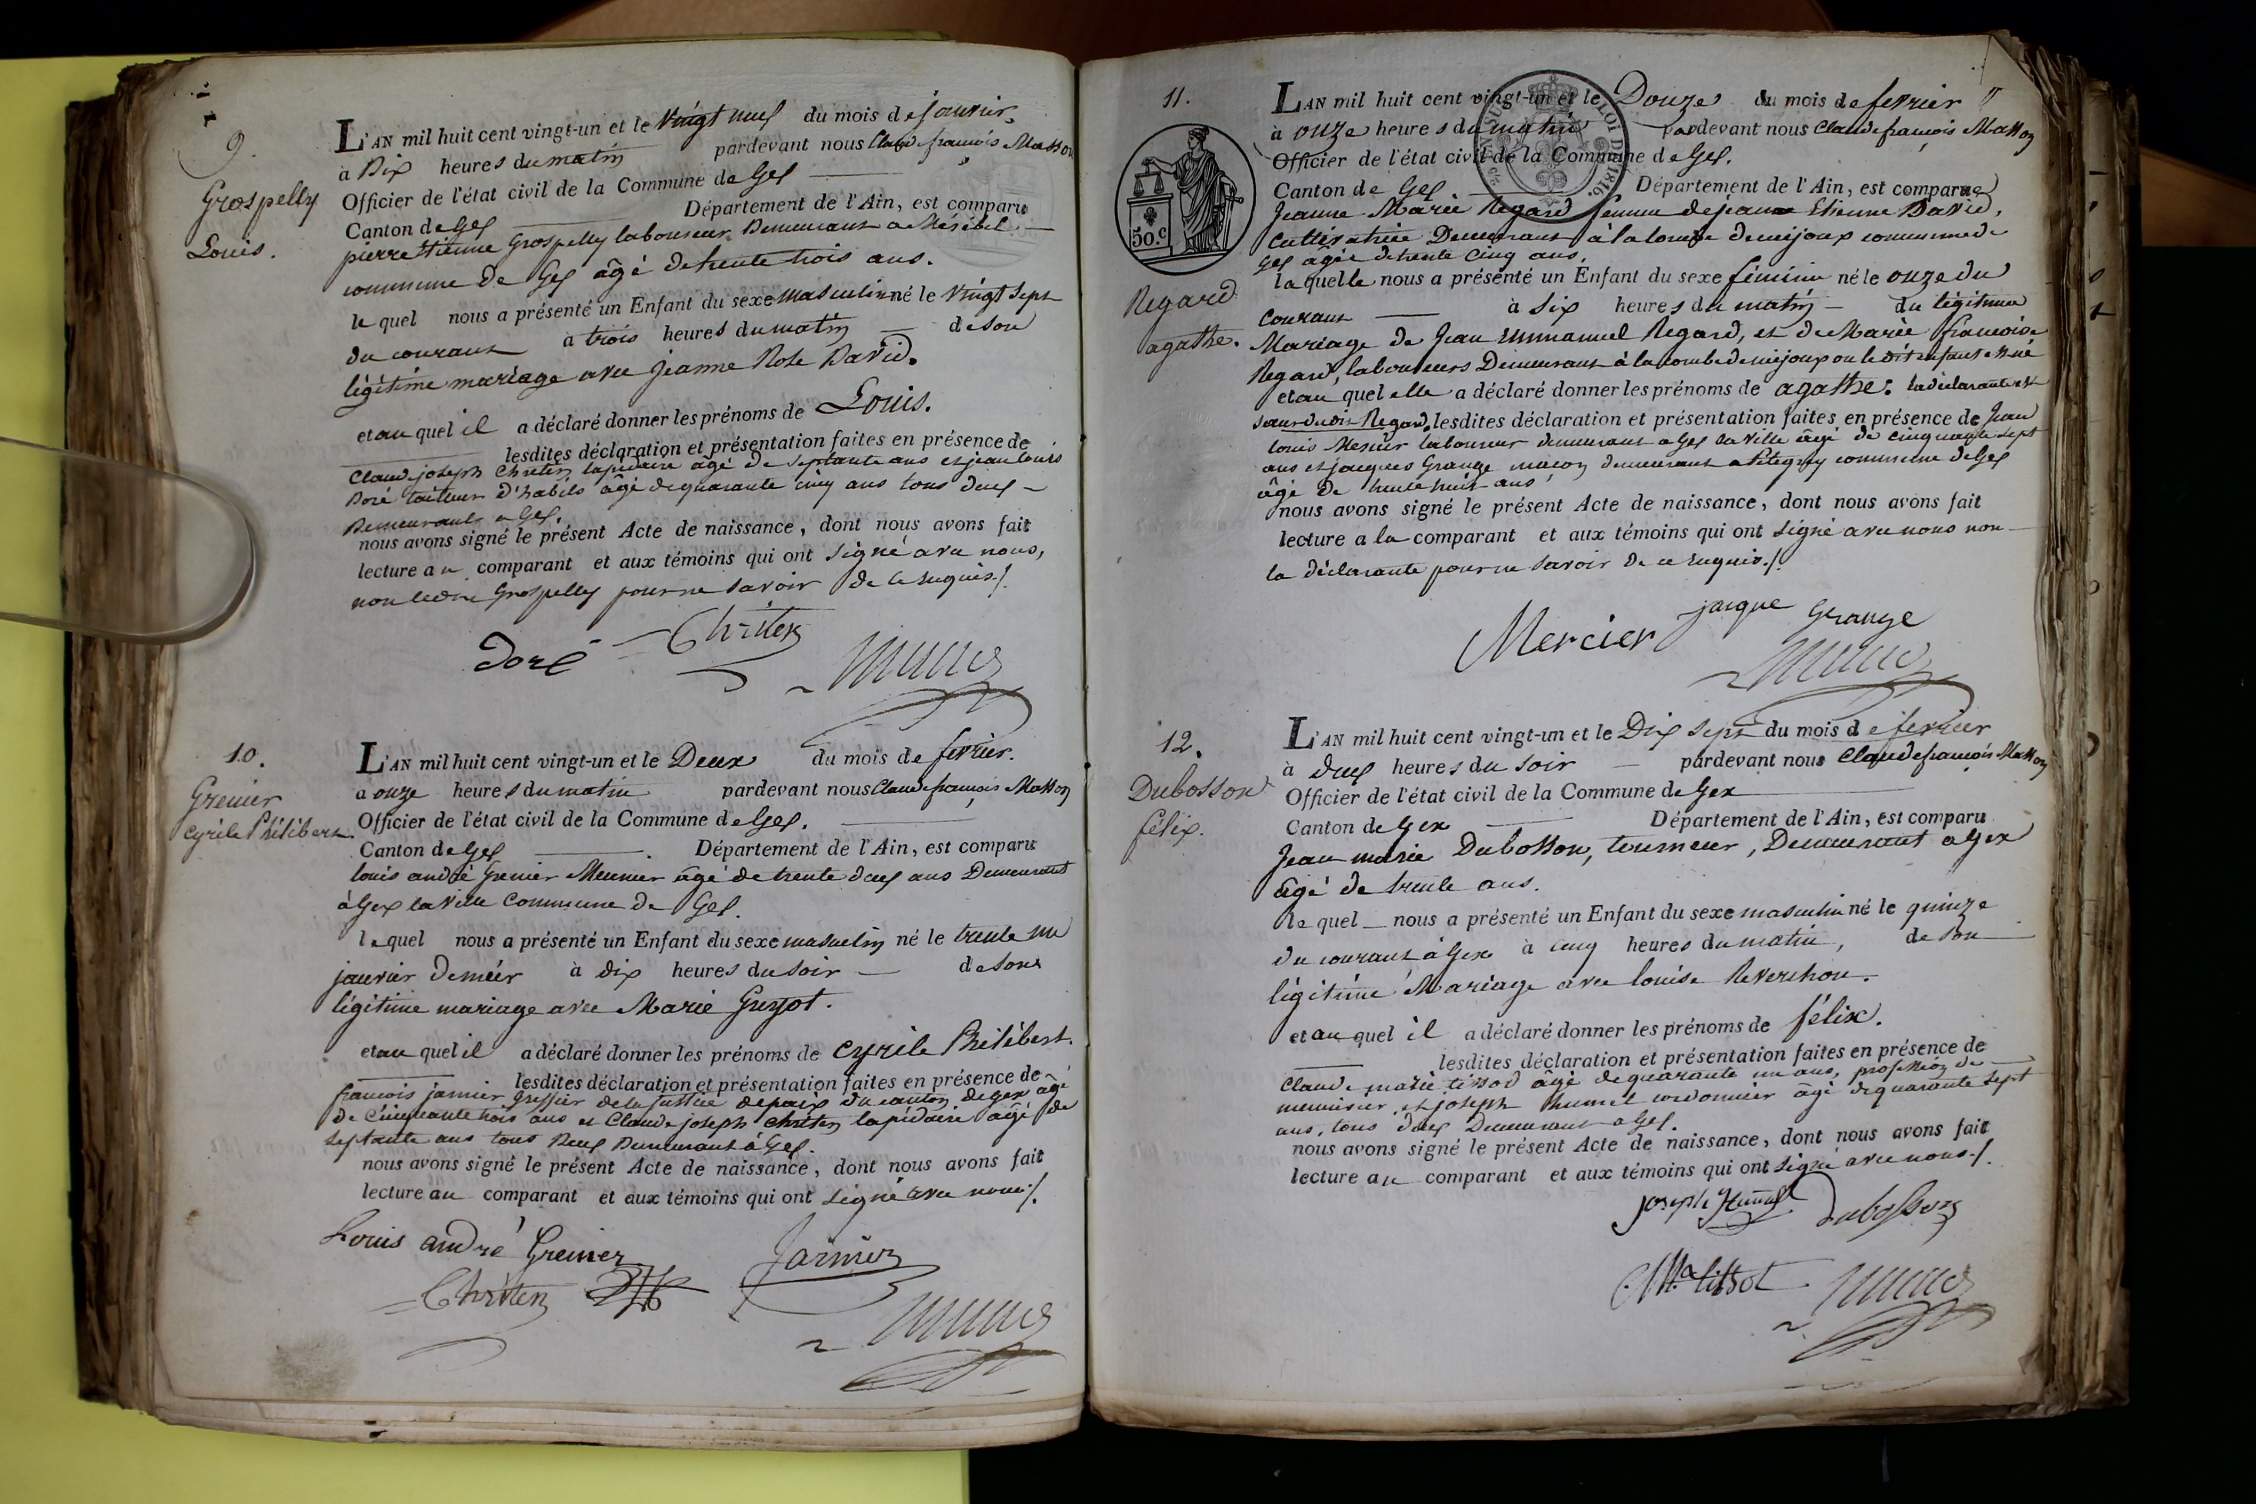 9.
Grospelly
Louis.
L'AN mil huit cent vingt-un et le vingt neuf du mois de janvier.
à Dix heures du matin pardevant nous Claude françois Masson
Officier de l'état civil de la Commune de Gex
Canton de Gex Département de l'Ain, est comparu
pierre Etienne Grospelly laboureur Demeurant a
commune de Gex âgé de trente trois ans.
le quel nous a présenté un Enfant du sexe masculin né le vingt sept
du courant à trois heures du matin de son
légitime mariage avec jeanne Rose David.
et au quel il a déclaré donner les prénoms de Louis.
lesdites déclaration et présentation faites en présence de
Claude joseph Chrîten lapidaire âgé de septante ans et jean louis
Doré tailleur d'habits âgé de quarante cinq ans tous deux
Demeurants a Gex.
nous avons signé le présent Acte de naissance, dont nous avons fait
lecture au comparant et aux témoins qui ont signé avec nous,
non ledit Grospelly pour ne savoir de ce requis./.
Doré Chrîten
10.
Grenier
Cyrile Philibert
L'AN mil huit cent vingt-un et le Deux du mois de fevrier.
a onze heures du matin pardevant nous Claude françois Masson
Officier de l'état civil de la Commune de Gex.
Canton de Gex Département de l'Ain, est comparu
louis andré Grenier Meunier âgé de trente deux ans Demeurant
à Gex la ville Commune de Gex.
lequel nous a présenté un Enfant du sexe masculin né le trente un
janvier dernier à dix heures du soir de son
légitime mariage avec Marie Guyot.
et au quel il a déclaré donner les prénoms de Cyrile Philibert.
lesdites déclaration et présentation faites en présence de
francois janier Greffier de la justice de paix du canton de gex âgé
de Cinquante trois ans et Claude joseph Chrîten lapidaire âgé de
septante ans tous Deux Demeurant à Gex.
nous avons signé le présent Acte de naissance, dont nous avons fait
lecture au comparant et aux témoins qui ont signé avec nous./.
Louis andré Grenier Janier
Chrîten
11.
50.c
Regard
agathe.
L'AN mil huit cent vingt-un et le Douze du mois de fevrier
à onze heures du matin pardevant nous Claude françois Masson
Officier de l'état civil de la Commune de Gex.
LOI DE 1816.
Canton de Gex. Département de l'Ain, est comparue
Jeanne Marie Regard femme de jean Etienne David,
Cultivatrice Demeurant à la combe de mijoux commune de
Gex âgée de trente Cinq ans,
la quelle nous a présenté un Enfant du sexe féminin né le onze du
Courant à six heures du matin du légitime
Mariage de Jean Emmanuel Regard, et de Marie francoise
Regard, laboureurs Demeurant à la combe de mijoux ou le dit enfant est né
et au quel elle a déclaré donner les prénoms de agathe. la déclarante est
soeur du dit Regard, lesdites déclaration et présentation faites en présence de Jean
louis Mercier laboureur demeurant a Gex la ville âgé de cinquante sept
ans et jacques Grange maçon demeurant a Pitegny commune de Gex
âgé de trente huit ans
nous avons signé le présent Acte de naissance, dont nous avons fait
lecture a la comparant et aux témoins qui ont signé avec nous non
la déclarante pour ne savoir de ce requis./.
Mercier jacque Grange
12.
Dubosson
félix.
L'AN mil huit cent vingt-un et le Dix sept du mois de fevrier
à deux heures du soir pardevant nous Claude françois Masson
Officier de l'état civil de la Commune de Gex
Canton de Gex Département de l'Ain, est comparu
Jean marie Dubosson, tourneur, Demeurant a Gex
âgé de trente ans.
le quel nous a présenté un Enfant du sexe masculin né le quinze
du courant à Gex à cinq heures du matin, de son
légitime Mariage avec louise Reverchon.
et au quel il a déclaré donner les prénoms de félix.
lesdites déclaration et présentation faites en présence de
Claude marie tissot âgé de quarante un ans, profession de
menuisier, et joseph humel cordonnier âgé de quarante sept
ans, tous deux Demeurant a Gex.
nous avons signé le présent Acte de naissance, dont nous avons fait
lecture au comparant et aux témoins qui ont signé avec nous./.
joseph Dubosson
C. M.a tissot